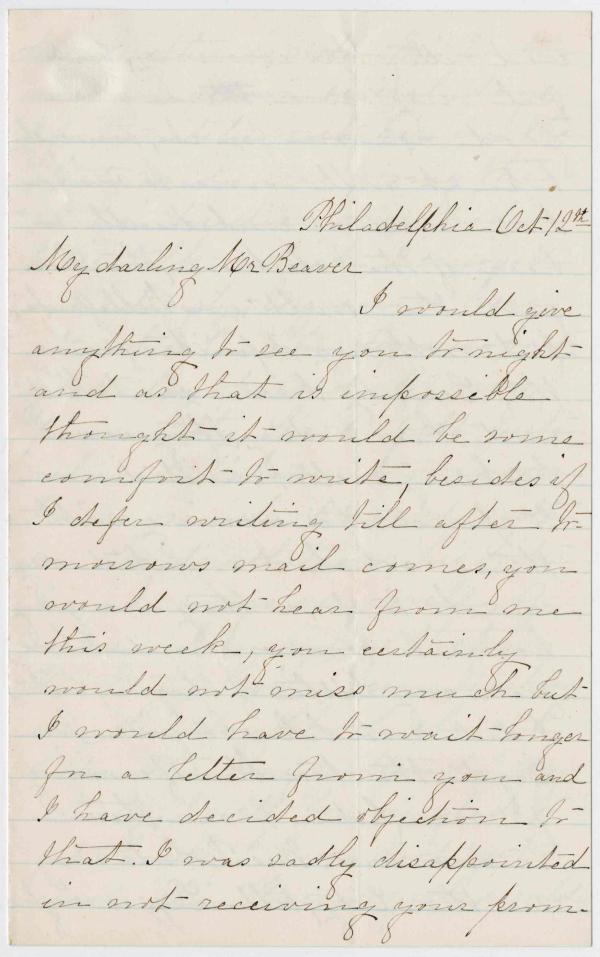 Philadelphia Oct 12th
My darling Mr Beaver
I would give
anything to see you to night
and as that is impossible
thought it would be some
comfort to write, besides if
I defer writing till after to-
morrows mail comes, you
would not hear from me
this week, you certainly
would not miss much but
I would have to wait longer
for a letter from you and
I have decided objection to
that. I was sadly disappointed
in not receiving your prom-